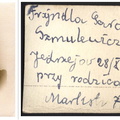 Frÿndla Garc
Szmulewicz
Jędrzejów 28/X
przy rodzica